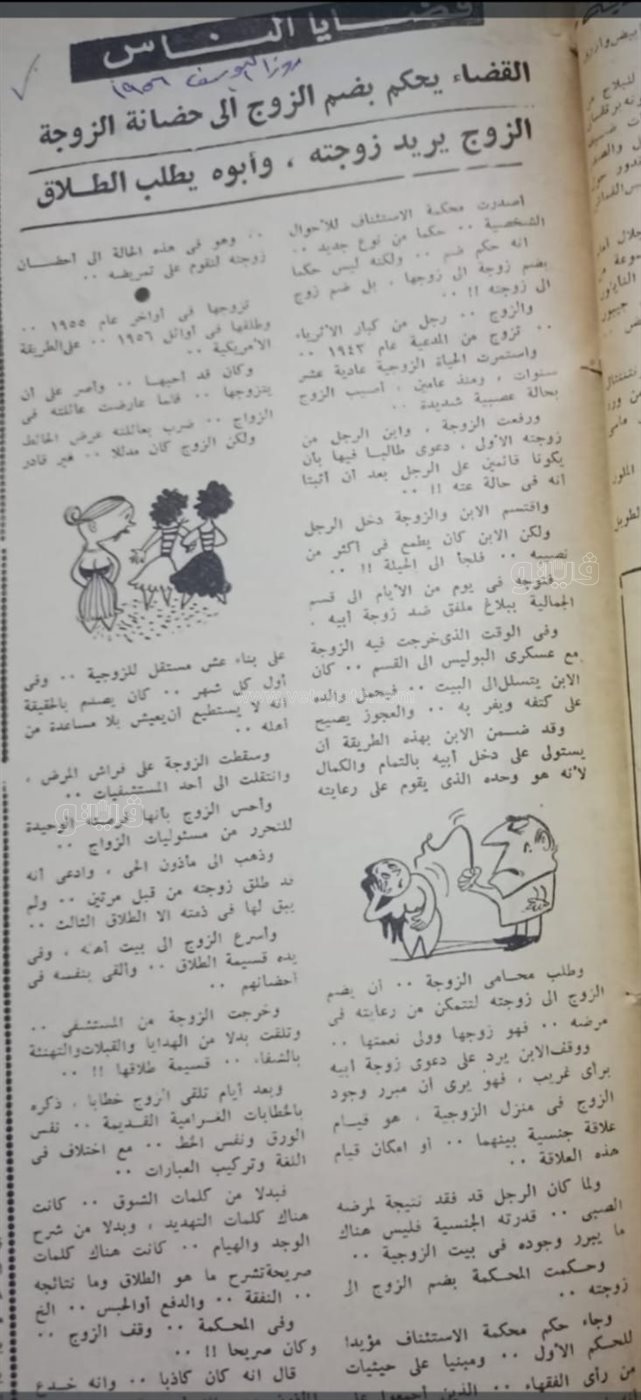 قضايا الناس
روزا اليوسف ١٩٥٦
القضاء يحكم بضم الزوج الى حضانة الزوجة
الزوج يريد زوجته ، وأبوه يطلب الطلاق
أصدرت محكمة الاستئناف للأحوال
الشخصية .. حكما من نوع جديد ..
انه حكم ضم .. ولكنه ليس حكما
بضم زوجة الى زوجها ، بل ضم زوج
الى زوجته !! ..
والزوج .. رجل من كبار الاثرياء
.. تزوج من المدعية عام ١٩٤٣ ..
واستمرت الحياة الزوجية عادية عشر
سنوات ، ومنذ عامين ، أصيب الزوج
بحالة عصبية شديدة ..
ورفعت الزوجة ، وابن الرجل من
زوجته الأولى ، دعوى طالبا فيها بأن
يكونا قائمين على الرجل بعد أن أثبتا
أنه فى حالة عته !! ..
واقتسم الابن والزوجة دخل الرجل
ولكن الابن كان يطمع فى أكثر من
نصيبه .. فلجأ الى الحيلة !! ..
فتوجه فى يوم من الأيام الى قسم
الجمالية ببلاغ ملفق ضد زوجة أبيه .
وفى الوقت الذى خرجت فيه الزوجة
مع عسكرى البوليس الى القسم .. كان
الابن يتسلل الى البيت .. فيحمل والده
على كتفه ويفر به .. والعجوز يصيح
وقد ضمن الابن بهذه الطريقة أن
يستولى على دخل أبيه بالتمام والكمال
لأنه هو وحده الذى يقوم على رعايته
وطلب محامى الزوجة .. أن يضم
الزوج الى زوجته لتتمكن من رعايته فى
مرضه .. فهو زوجها وولى نعمتها ..
ووقف الابن يرد على دعوى زوجة أبيه
برأى غريب ، فهو يرى أن مبرر وجود
الزوج فى منزل الزوجية ، هو قيام
علاقة جنسية بينهما .. أو امكان قيام
هذه العلاقة ..
ولما كان الرجل قد فقد نتيجة لمرضه
العصبى .. قدرته الجنسية فليس هناك
ما يبرر وجوده فى بيت الزوجية ..
وحكمت المحكمة بضم الزوج الى
زوجته ..
وجاء حكم محكمة الاستئناف مؤيدا
للحكم الأول .. ومبنيا على حيثيات
من رأى الفقهاء .. الذين أجمعوا على
.. وهو فى هذه الحالة الى أحضان
زوجته لتقوم على تمريضه ..
تزوجها فى أواخر عام ١٩٥٥ ..
وطلقها فى أوائل ١٩٥٦ .. على الطريقة
الأمريكية ..
وكان قد أحبها .. وأصر على أن
يتزوجها .. فلما عارضت عائلته فى
الزواج .. ضرب بعائلته عرض الحائط
ولكن الزوج كان مدللا .. غير قادر
على بناء عش مستقل للزوجية .. وفى
أول كل شهر .. كان يصدم بالحقيقة
أنه لا يستطيع أن يعيش بلا مساعدة من
أهله ..
وسقطت الزوجة على فراش المرض ،
وانتقلت الى أحد المستشفيات ..
وأحس الزوج بأنها فرصته الوحيدة
للتحرر من مسئوليات الزواج ..
وذهب الى مأذون الحى ، وادعى أنه
قد طلق زوجته من قبل مرتين .. ولم
يبق لها فى ذمته الا الطلاق الثالث ..
وأسرع الزوج الى بيت أهله ، وفى
يده قسيمة الطلاق .. وألقى بنفسه فى
أحضانهم ..
وخرجت الزوجة من المستشفى ..
وتلقت بدلا من الهدايا والقبلات والتهنئة
بالشفاء .. قسيمة طلاقها !! ..
وبعد أيام تلقى الزوج خطابا ، ذكره
بالخطابات الغرامية القديمة .. نفس
الورق ونفس الخط .. مع اختلاف فى
اللغة وتركيب العبارات ..
فبدلا من كلمات الشوق .. كانت
هناك كلمات التهديد ، وبدلا من شرح
الوجد والهيام .. كانت هناك كلمات
صريحة تشرح ما هو الطلاق وما نتائجه
.. النفقة .. والدفع أو الحبس .. الخ
وفى المحكمة .. وقف الزوج ..
وكان صريحا !! ..
قال انه كان كاذبا .. وانه خدع